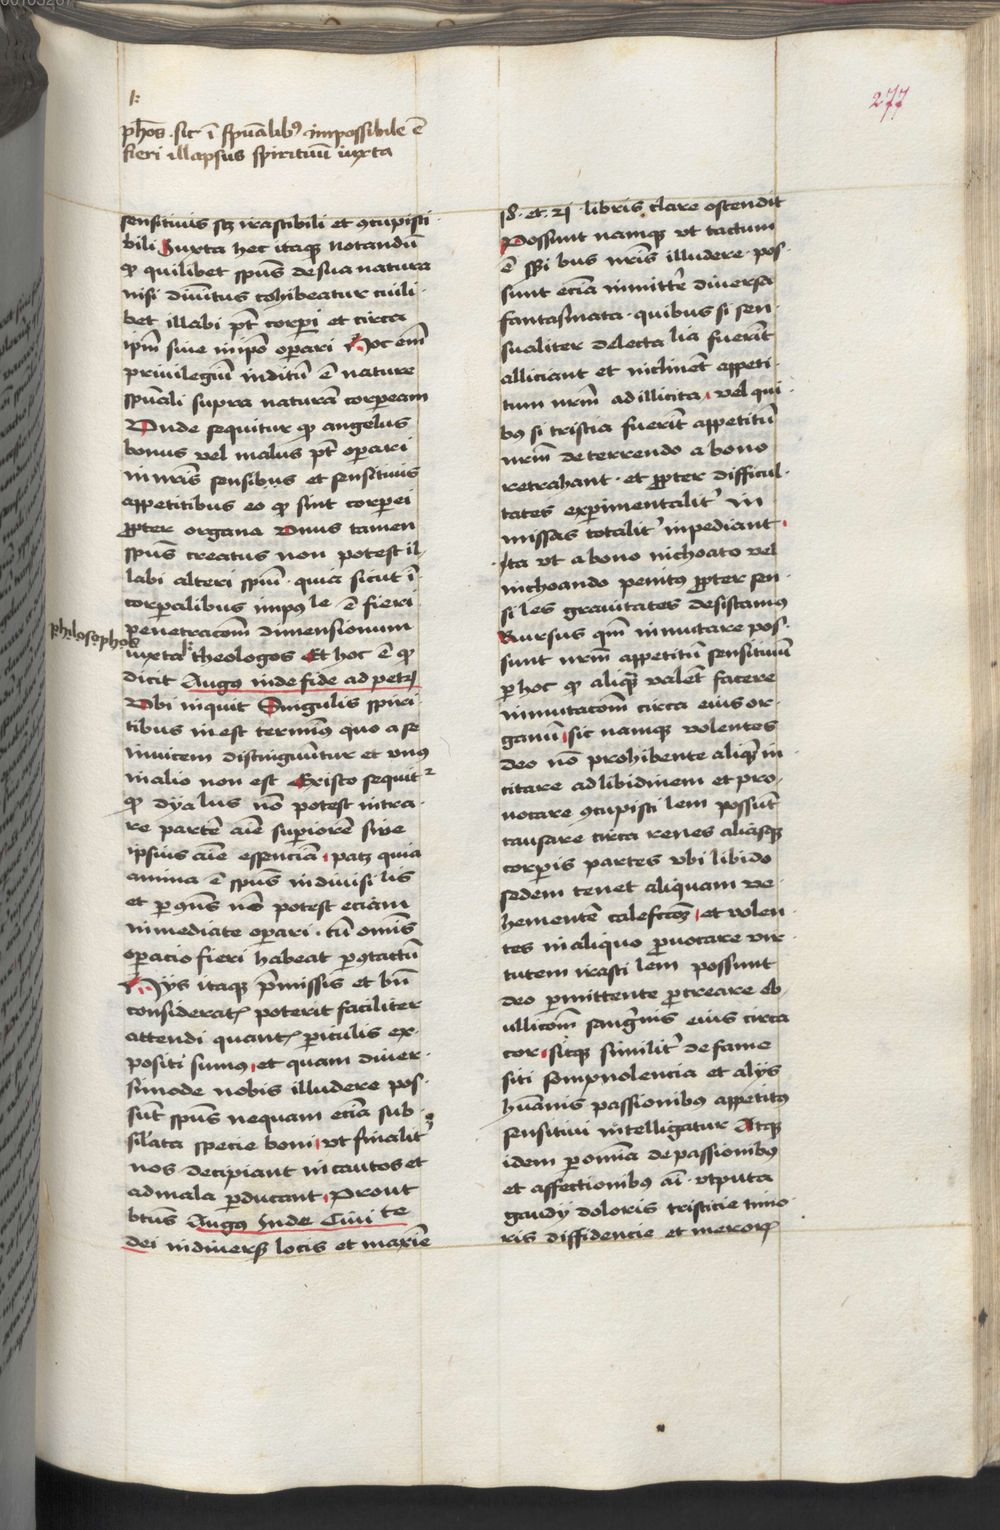 00105267
277
k
ph̄os . sic ī spūalibꝫ impossibile ē
fieri illapsus spirituū iuxta
sensitiuis scꝫ irascibili et ꝯcupisci
bili Juxta hec itaqꝫ notandū
ꝙ quilibet spūs de sua natura
nisi diuītus cohibeatur cuili
bet illabi pt̄ corpori et circa
ipm̄ siue in ipō operari Hoc em̄
priuilegiū inditū ē nature
spūali supra naturā corpoream
Unde sequitur ꝙ angelus
bonus vel malus pt̄ operari
in nr̄is sensibus et sensitiuis
appetitibus eo ꝙ sint corporei
ꝓpter organa Unus tamen
spūs creatus non potest il
labi alteri spūi . quia sicut ī
corporalibus imposle ē fieri
penetracōm dimensionum
philosophos
iuxta k theologos Et hoc ē ꝙ
dicit Augꝫ in de fide ad petrꝫ
Ubi inquit Singulis spiri
tibus inest terminꝫ quo a se
inuicem distinguūtur et vnꝫ
in alio non est Ex isto sequit̉
ꝙ dyalus nō potest intra
re partē aīe superiorē siue
ipsius aīe essenciā . patꝫ quia
anima ē spūs indiuisilis
et ꝑ ꝯn̄s nō potest eciam
inmediate operari . cū omīs
operacio fieri habeat ꝑ ꝯtactū
Hys itaqꝫ p̄missis et bn̄
consideratꝭ poterit faciliter
attendi quantꝭ periculis ex
positi sumꝫ . et quam diuer
simode nobis illudere pos
sūt spūs nequam eciā sub
silata specie boni . vt finalit̉
nos decipiant incautos et
ad mala ꝑducant . Prout
btūs Augꝫ in de Ciuite
dei in diuersꝭ locis et maxīe
18 . et . 21 . libris clare ostendit
Possunt namqꝫ vt tactum
ē sensibus nr̄is illudere . pos
sunt eciā inmittr̄e diuersa
fantasmata . quibus si sen
sualiter delectalia fuerīt
alliciant et inclinēt appeti
tum nr̄m ad illicita . vel qui
bꝫ si tristia fuerīt appetitū
nr̄m deterrendo a bono
retrahant . et ꝓpter difficul
tates experimentalit̉ in
missas totalit̉ inpediant .
Ita vt a bono inchoato vel
inchoando penitꝫ ꝓpter sen
siles grauitates desistamꝫ
Rursus qm̄ inmutare pos
sunt nr̄m appetitū sensitiuū
ꝑ hoc ꝙ aliqm̄ valēt facere
inmutacōm circa eius or
ganū . sic namqꝫ volentes
deo nō prohibente aliqm̄ in
citare ad libidinem et pro
uocare ꝯcupiscilem possūt
causare circa renes aliasqꝫ
corporis partes vbi libido
sedem tenet aliquam ve
hementē calefccōꝫ . et volen
tes in aliquo ꝓuocare vir
tutem irascilem possunt
deo ꝑmittente ꝓcreare eb
ullicōm sangwinis eius circa
cor . sicqꝫ similit̉ de fame
siti sompnolencia et alijs
hūanis passionibꝫ appetitꝫ
sensitiui intelligatur Atqꝫ
idem ꝑ omnia de passionibꝫ
et affectionibꝫ aīe . vtputa
gaudij doloris tristicie timo
ris diffidencie et merorꝭ